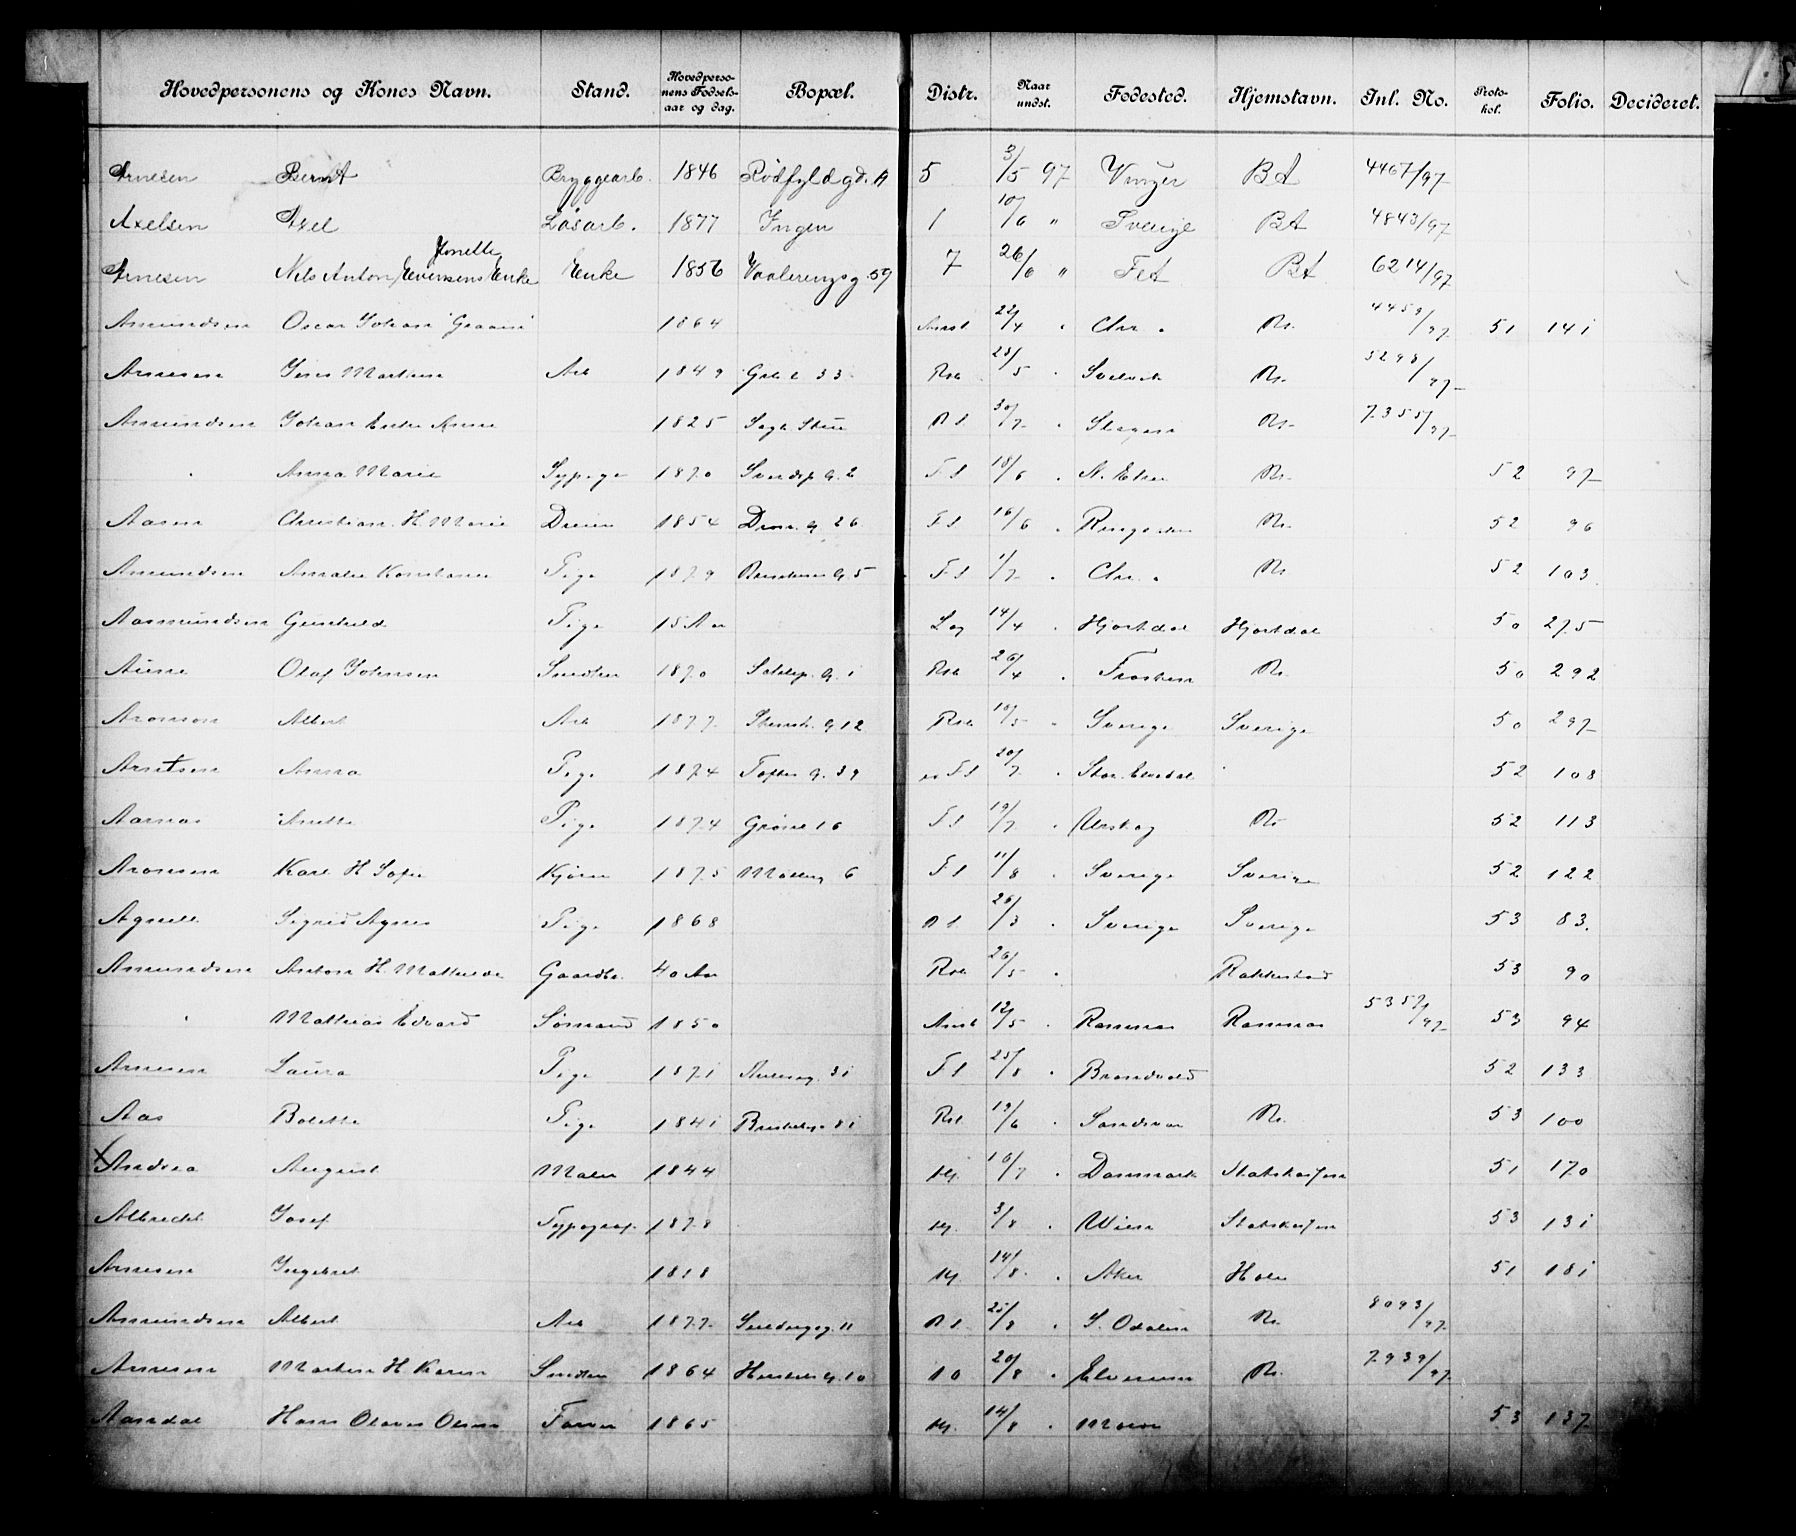 Hovedpersonens og Kones Navn. Stand. Hovedperso-nens Fødsels-aar og dag. Bopæl. Distr. Naar undst. Fødested. Hjemstavn. Inl. No. Proto-kol. Folio. Decideret.
Arnesen Bernt Bryggearb. 1846 Rødfyldgd. 5 3/5 97 Vinger BA 4467/97
Axelsen Axel Løsarb. 1877 Ingen 1 10/6 " Sverige BA 4843/97
Jonette
Arnesen Nils Anton Evensens Enke Enke 1856 Vaalerengsg. 59 7 26/6 " Fet BA 6214/97
Amundsen Oscar Johan 1864 22/4 Chr. a 4459/97 51 141
Arnesen Jens Martin Arb 1849 33 Rst 28/5 Svelvik Rs. 3298/97
Amundsen Johan Enke Anne 1825 30/7 Rs. 7355/97
" Anna Marie Sypige 1870 2 Fs 18/6 Rs. 52 97
Aasen Christian H. Marie 1854 26 Fs 16/6 Rs. 52 96
Amundsen Amalie Konstanse Pige 1879 5 Fs 1/7 Chr. a Rs. 52 103
Aasmundsen Gunhild Pige 15 Aar Lag 14/4 Hjartdal Hjartdal 50 275
Aune Olaf Johnsen Snedker 1870 1 Rst 26/4 Frosten Rs. 50 292
Aronson Albert Arb 1877 12 Rst 10/5 Sverige Sverige 50 297
Arntsen Anna Pige 1874 Toftes g. 39 Fs 20/7 Stor Elvedal 52 108
Aarnas Anette Pige 1874 Grønl 16 Fs 19/7 Urskog Rs 52 113
Aronsen Karl H Sofie Kjører 1875 Mølleg 6 Fs 11/8 Sverige Sverige 52 122
Agnell Sigrid Agnes Pige 1868 26/3 Sverige Sverige 53 83.
Amundsen Anton H. Mathilde Gaardbr. 40 Aar Rst 26/5 Rakkestad 53 90
" Mathias Edvard Sømand 1850 12/5 Ramnas Ramnas 5357/97 53 94
Arnesen Laura Pige 1871 31 Fs 25/8 Brandvold 52 133
Aas Bolette Pige 1841 81 Rst. 19/6 Sandsvær Rs. 53 100
X Andrea August Maler 1844 10/7 Danmark Statskassen 51 170
Albrecht Josef Typograf. 1878 3/8 Wien Statskassen 53 131
Arnesen Ingebret 1818 14/8 Aker Hole 51 181
Amundsen Albert Arb 1877 11 25/8 S. Odalen Rs. 8093/97
Arnesen Martin H Karen Snedker 1864 10 10 20/8 Elverum Rs. 7939/97
Aamdal Hans Olaves Olsen Farver 1865 14/8 53 137